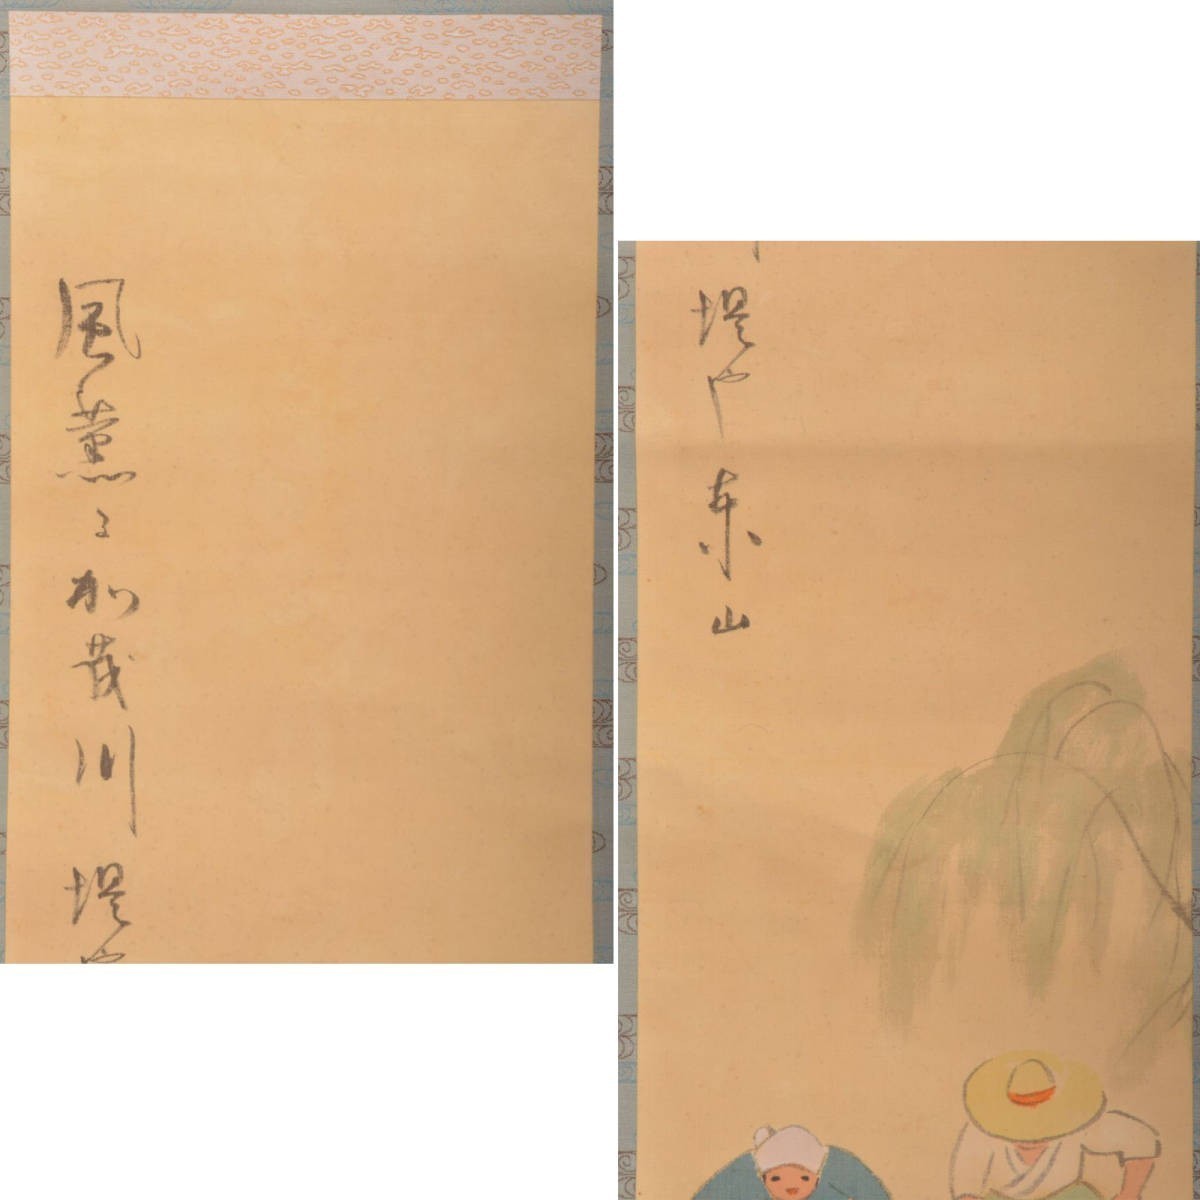 風薫る加茂川堤や
堤や東山